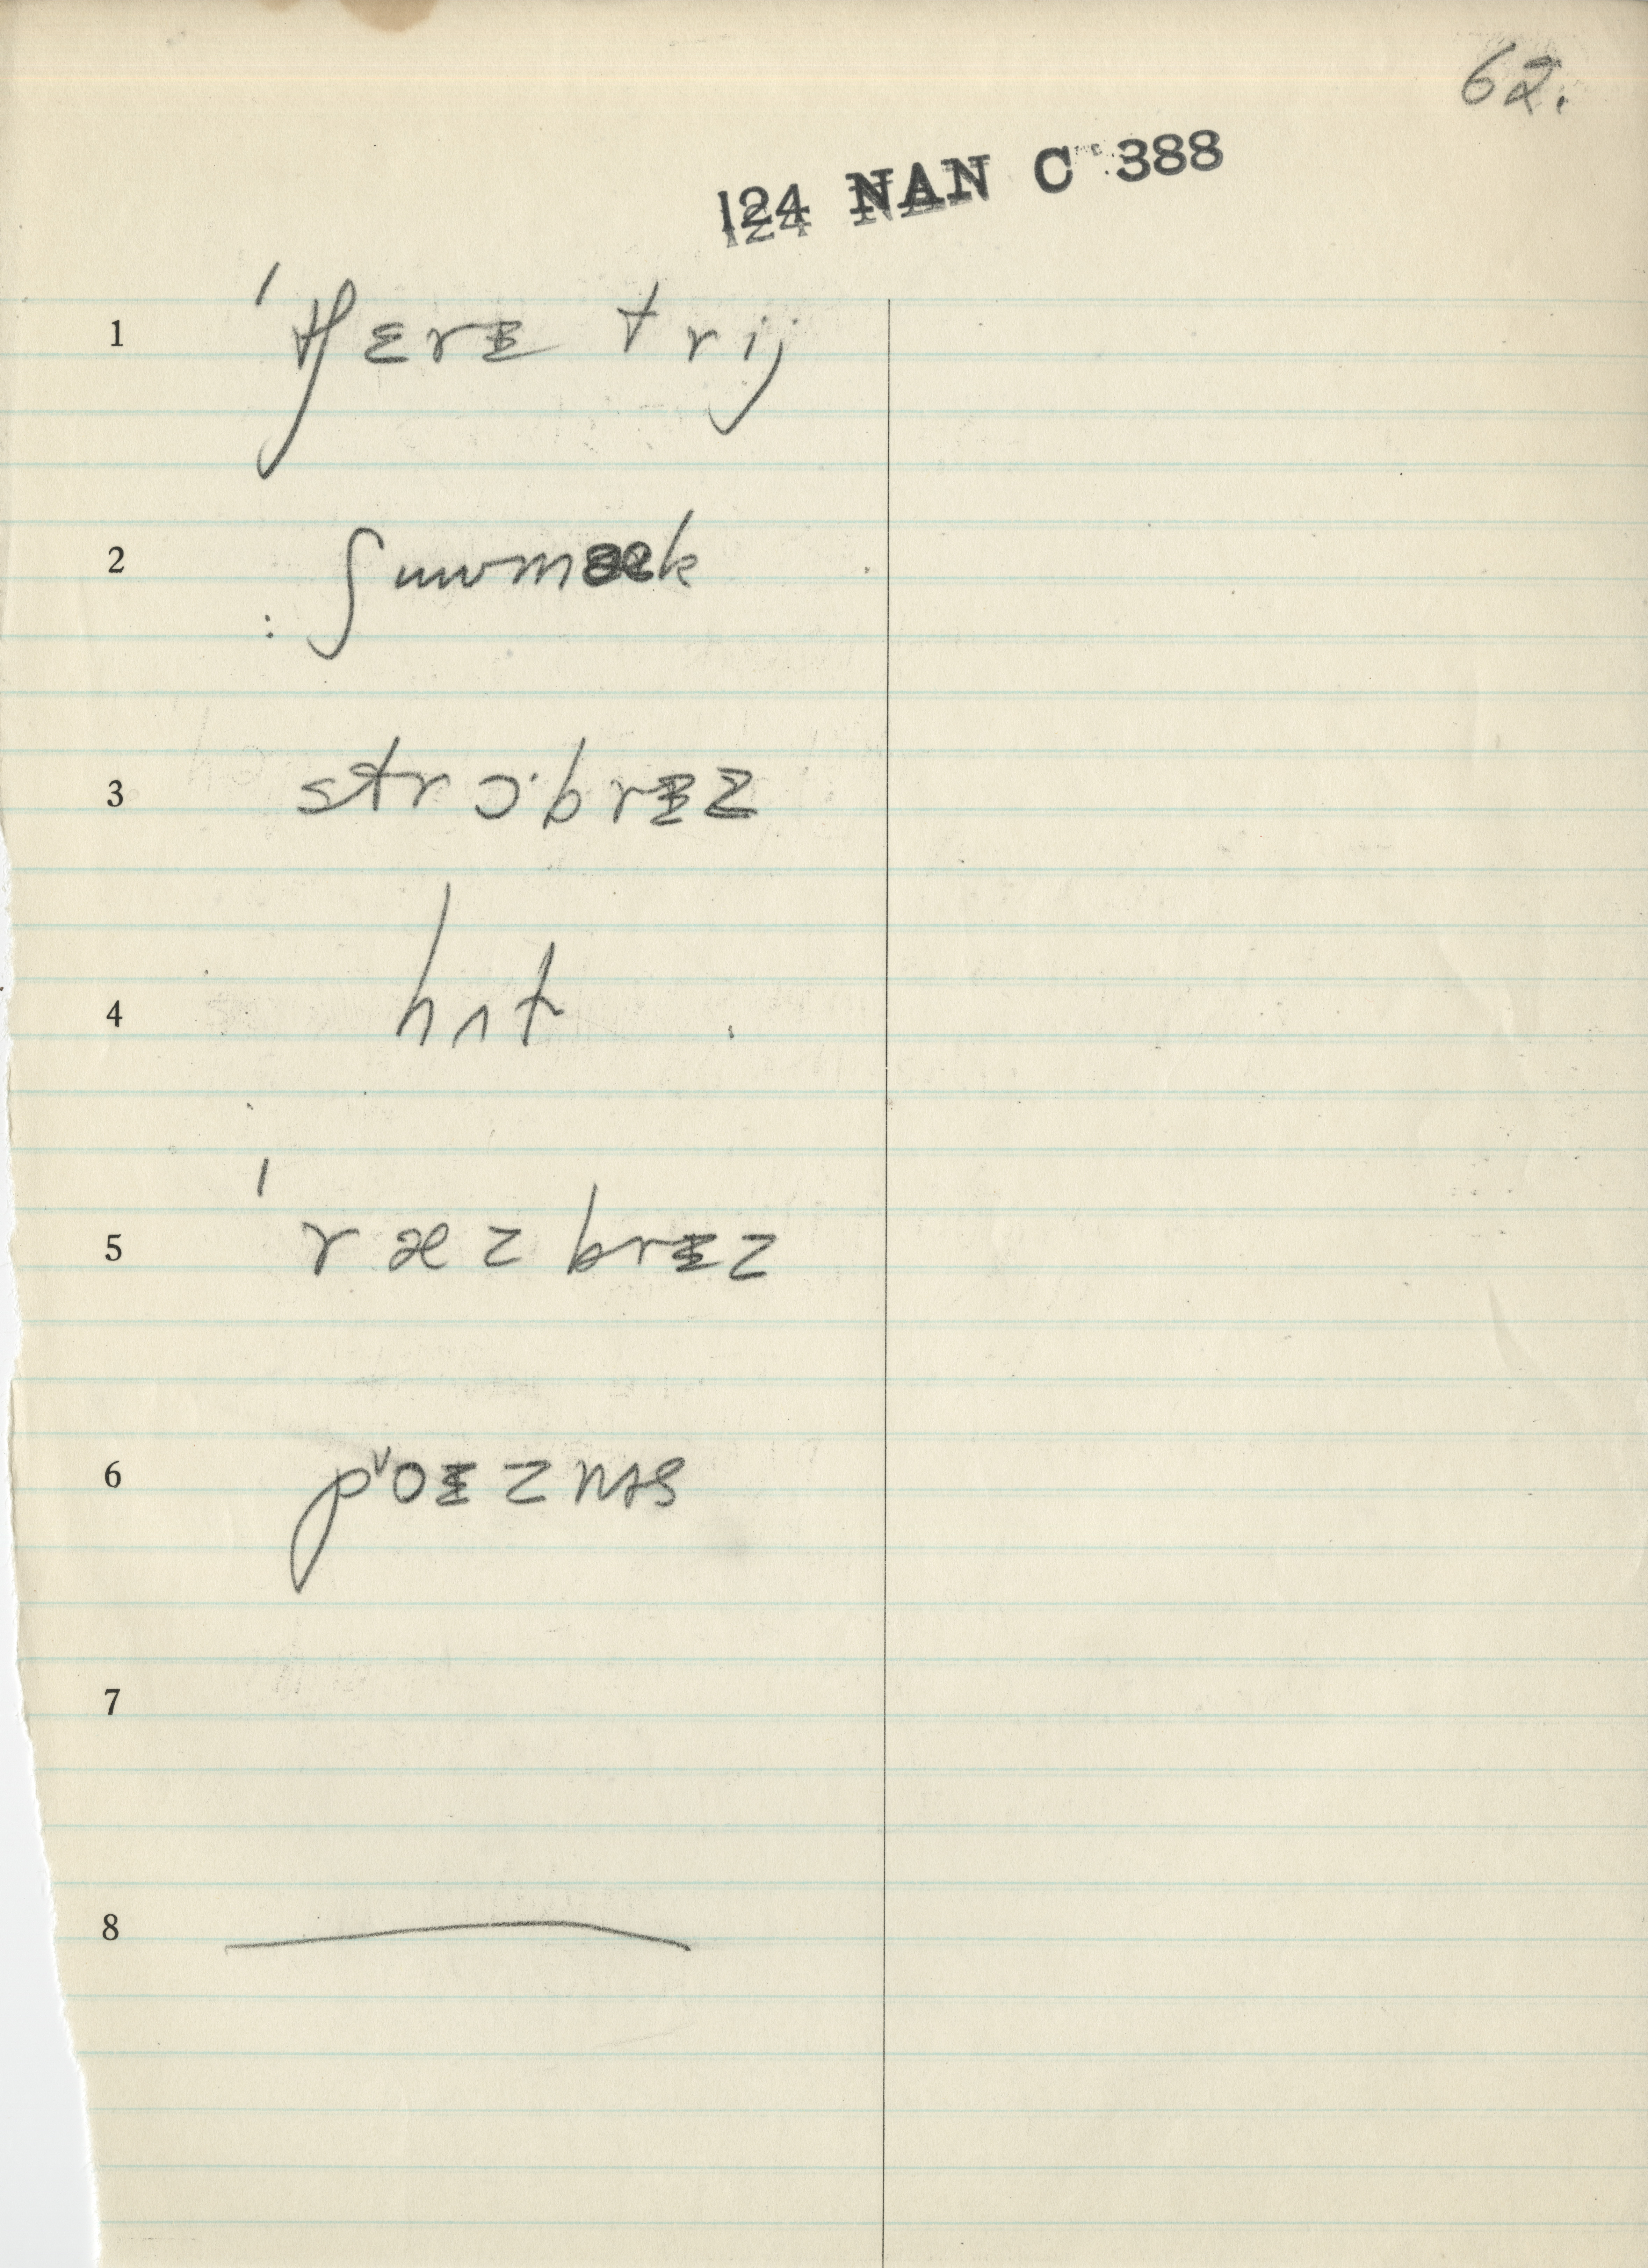 62.
124 NAN C 388
1 ˈtʃɛrɪ trij
2 ʃuwmæk
3 strɔ·brɪz
4 hʌt
5 ˈræzbrɪz
6 pᵛoɪznəs
7
8